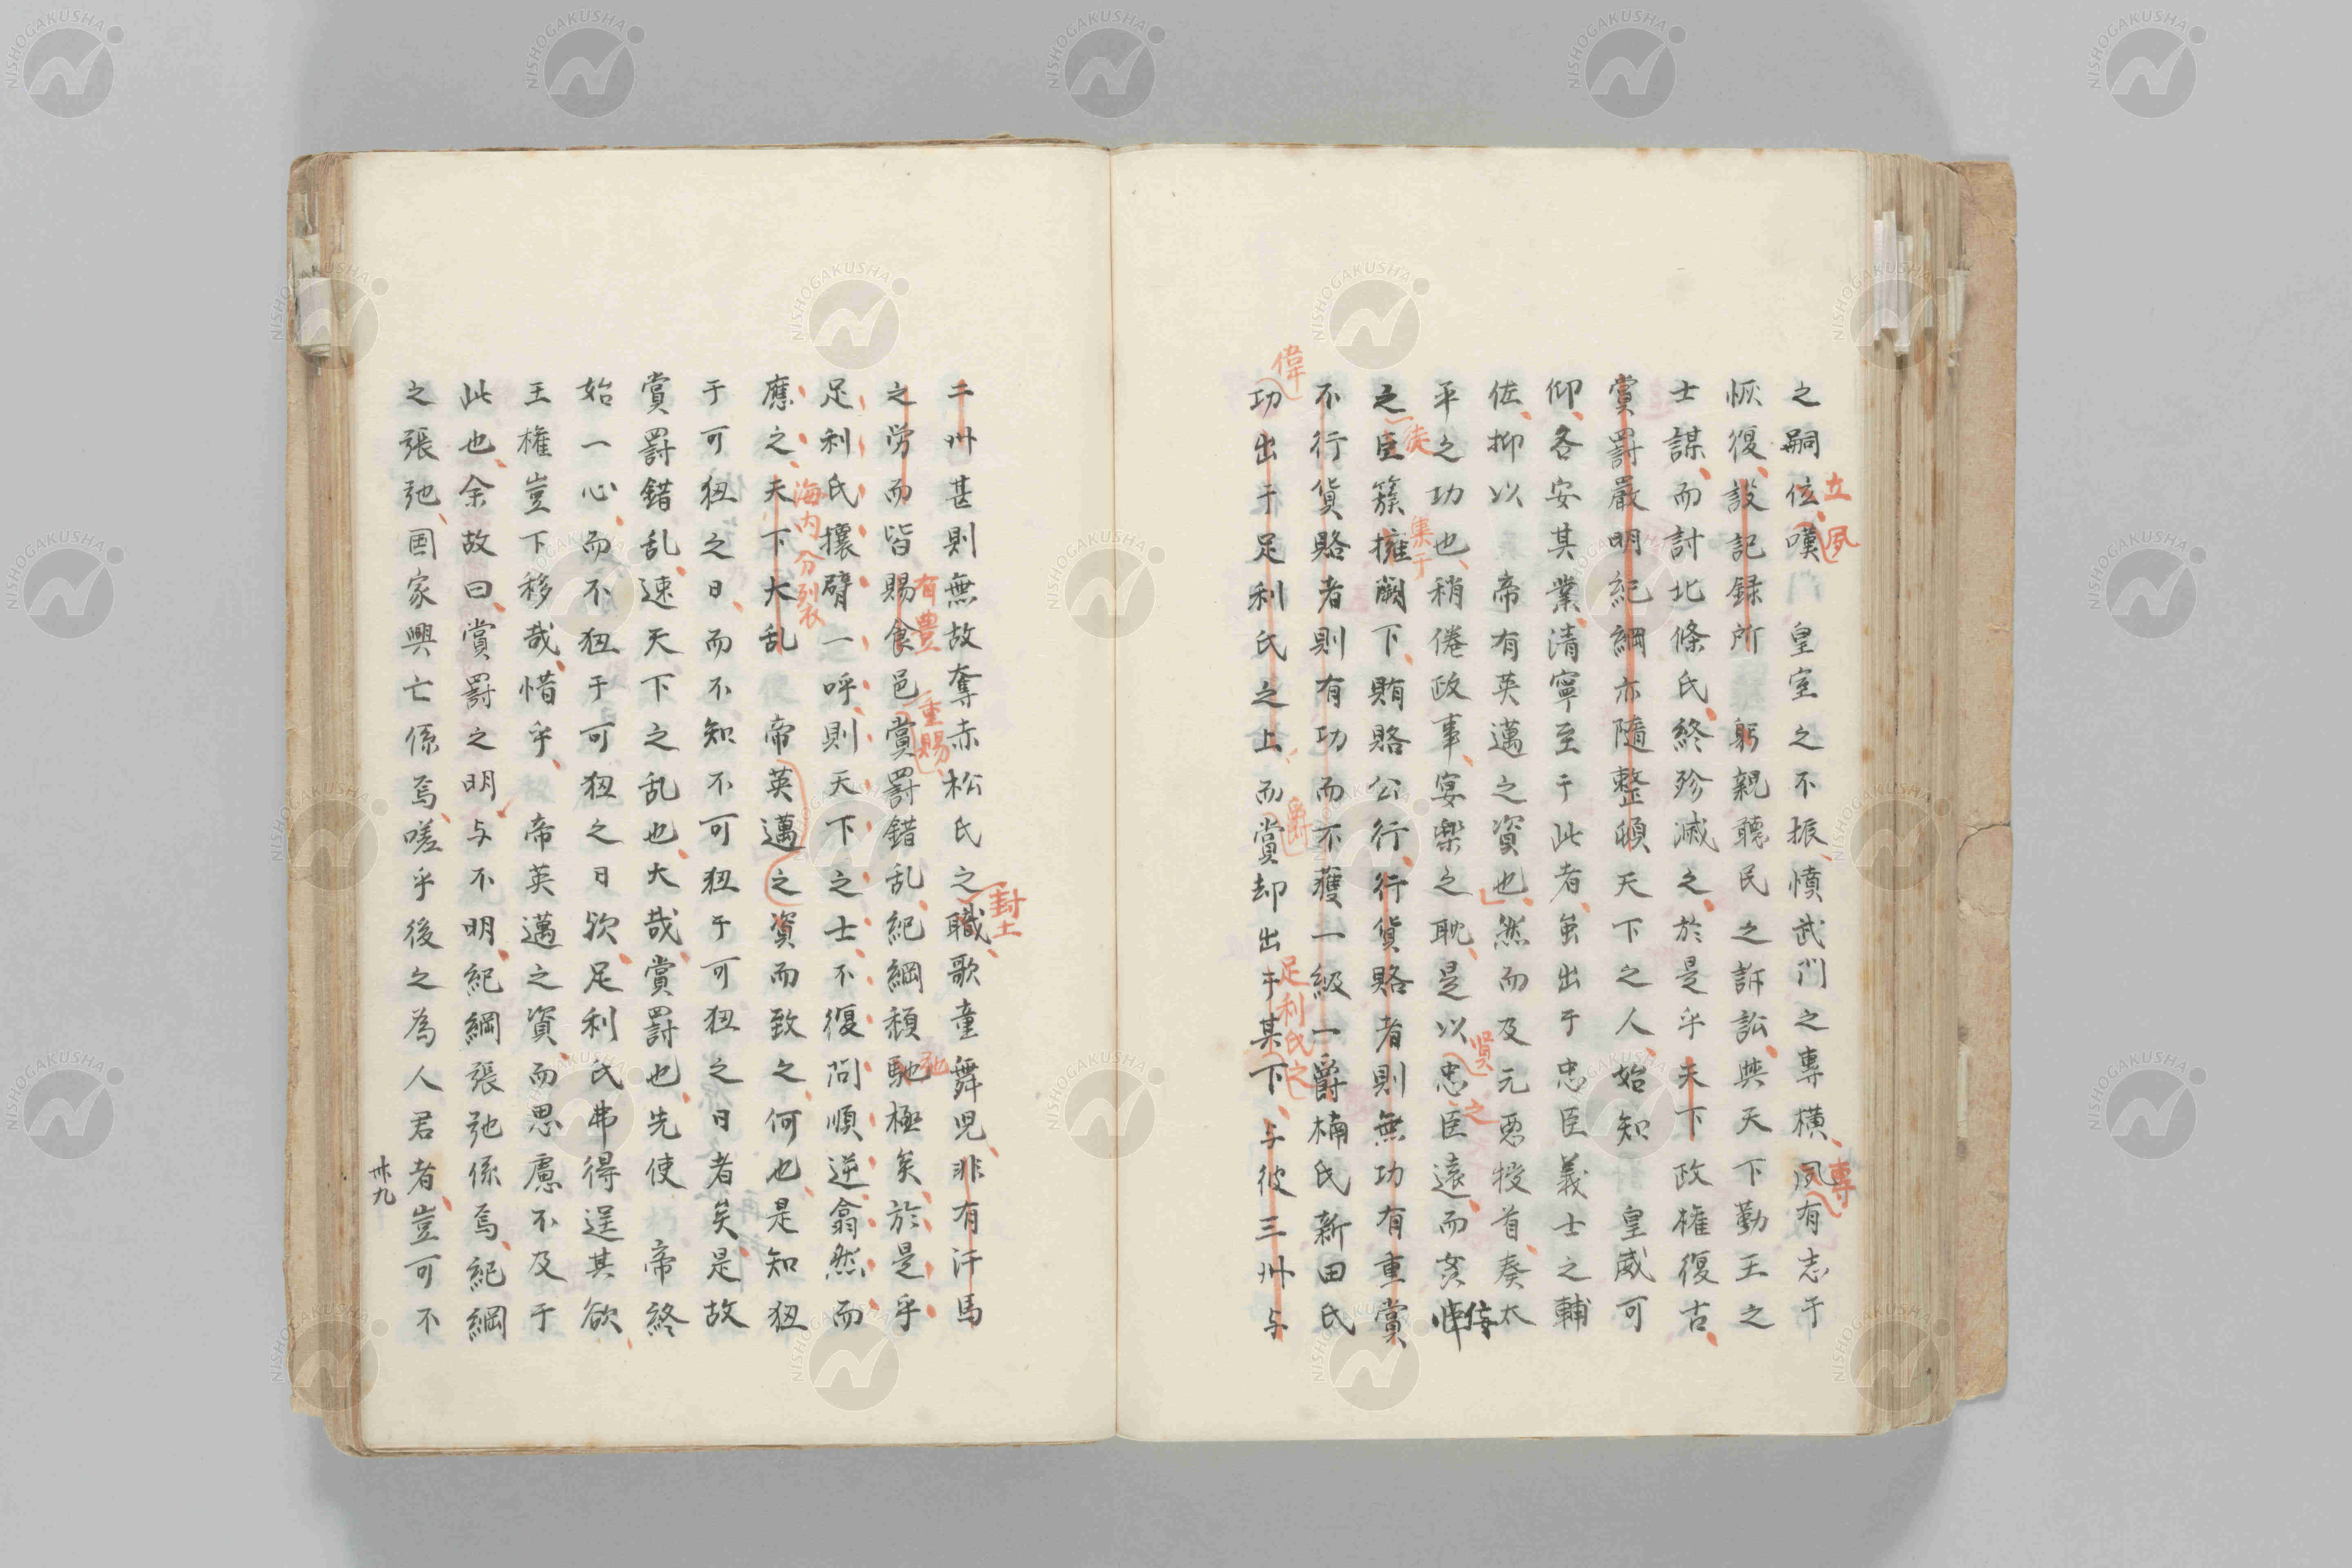 之嗣位嘆　皇室之不振憤武門之専横夙有志于
立
夙
専
恢復設記録所　躬親聴民之訴訟與天下勤王之
士謀而討北條氏終殄滅之於是乎天下政権復古
賞罰嚴明紀綱亦隨整頓天下之人始知　皇威可
仰各安其業清寧至于此者虽出于忠臣義士之輔
佐抑以　帝有英邁之資也然而及元悪授首奏太
平之功也稍倦政事宴楽之耽是以忠臣遠而
賢
之
佞
之臣簇擁闕下賄賂公行行貨賂者則無功有重賞
徒
集于
不行貨賂者則有功而不獲一級一爵楠氏新田氏
功出于足利氏之上而賞却出于某下与彼三州与
偉
爵
足利氏之
二州甚則無故奪赤松氏之職歌童舞児非有汗馬
封土
之労而皆賜食邑賞罰錯乱紀綱頽馳極矣於是乎
有豊
重賜
弛
足利氏攘臂一呼則天下之士不復問順逆翕然而
應之天下大乱　帝英邁之資而致之何也是知狃
海内分裂
于可狃之日而不知不可狃于可狃之日者矣是故
賞罰錯乱速天下之乱也大哉賞罰也先使　帝終
始一心而不狃于可狃之日欤足利氏弗得逞其欲
王権豈下移哉惜乎　帝英邁之資而思慮不及于
此也余故曰賞罰之明与不明紀綱張弛係焉紀綱
之張弛国家興亡係焉嗟乎後之為人君者豈可不
卅九
NISHOGAKUSHA